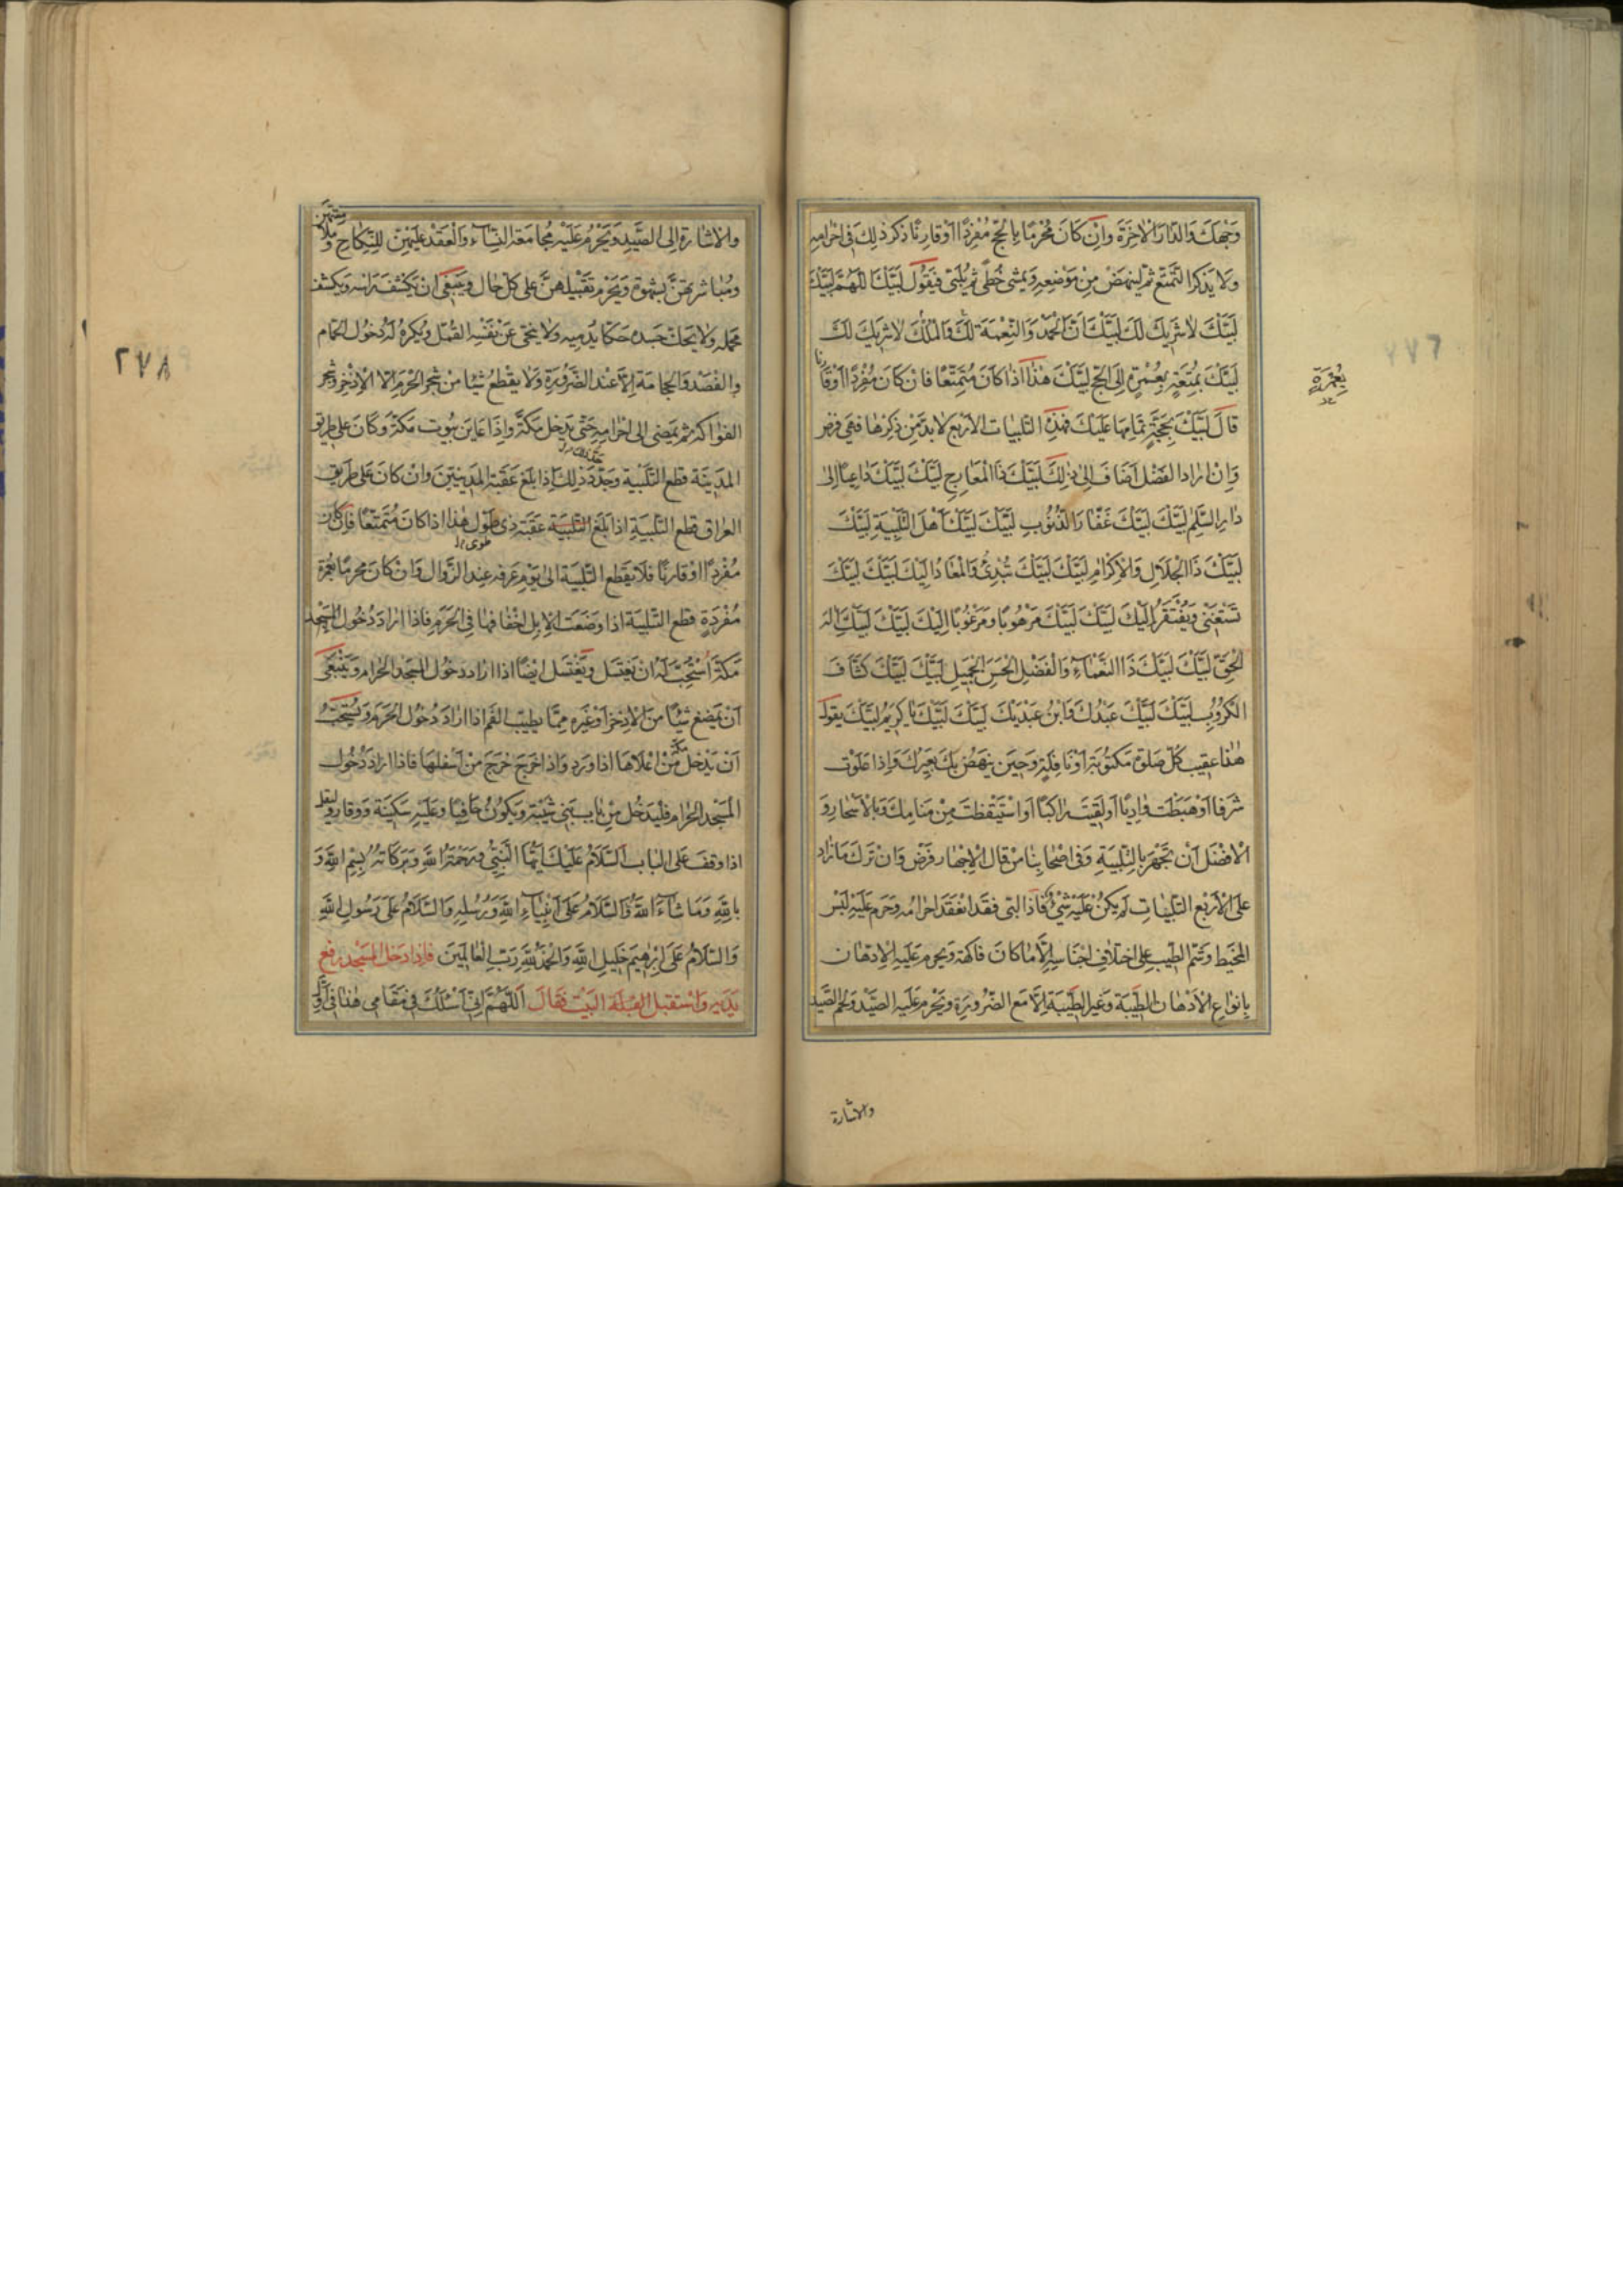 وَجْهَكَ وَالدّٰارَ الْاٰخِرَةَ وَاِنْ كَانَ مُحْرِمًا بِالْحَجِّ مُفْرِدًا اَوْ قَارِنًا ذَكَرَ ذٰلِكَ فِى اِحْرٰامِهِ
وَلَا يَذْكُرُ التَّمَتُّعَ ثُمَّ لْيَنْهَضْ مِنْ مَوْضِعِهِ وَيَمْشِى خُطًى ثُمَّ يُلَبِّى فَيَقُولُ لَبَّيْكَ اللّٰهُمَّ لَبَّيْكَ
لَبَّيْكَ لَا شَرِيكَ لَكَ لَبَّيْكَ اِنَّ الْحَمْدَ وَالنِّعْمَةَ لَكَ وَالْمُلْكَ لَا شَرِيكَ لَكَ
لَبَّيْكَ بِمُتْعَةٍ بِعُمْرَةٍ اِلَى الْحَجِّ لَبَّيْكَ هٰذٰا اِذٰا كَانَ مُتَمَتِّعًا فَاِنْ كَانَ مُفْرِدًا اَوْ قَارِنًا
بِعُمْرَةٍ
قَالَ لَبَّيْكَ بِحَجَّةٍ تَمَامُهَا عَلَيْكَ فَهٰذِهِ التَّلْبِيَاتُ الْاَرْبَعُ لَا بُدَّ مِنْ ذِكْرِهَا فَهِىَ فَرْضٌ
وَاِنْ اَرٰادَ الْفَضْلَ اَضَافَ اِلٰى ذٰلِكَ لَبَّيْكَ ذَا الْمَعَارِجِ لَبَّيْكَ لَبَّيْكَ دٰاعِيًا اِلٰى
دٰارِ السَّلٰمِ لَبَّيْكَ لَبَّيْكَ غَفَّارَ الذُّنُوبِ لَبَّيْكَ لَبَّيْكَ اَهْلَ التَّلْبِيَةِ لَبَّيْكَ
لَبَّيْكَ ذَا الْجَلَالِ وَالْاِكْرٰامِ لَبَّيْكَ لَبَّيْكَ تُبْدِئُ وَالْمَعَادُ اِلَيْكَ لَبَّيْكَ لَبَّيْكَ
تَسْتَغْنِى وَيُفْتَقَرُ اِلَيْكَ لَبَّيْكَ لَبَّيْكَ مَرْهُوبًا وَمَرْغُوبًا اِلَيْكَ لَبَّيْكَ لَبَّيْكَ اِلٰهَ
الْحَقِّ لَبَّيْكَ لَبَّيْكَ ذَا النَّعْمَاءِ وَالْفَضْلِ الْحَسَنِ الْجَمِيلِ لَبَّيْكَ لَبَّيْكَ كَشَّافَ
الْكُرُوبِ لَبَّيْكَ لَبَّيْكَ عَبْدُكَ وَابْنُ عَبْدَيْكَ لَبَّيْكَ لَبَّيْكَ يَا كَرِيمُ لَبَّيْكَ يَقُولُ
هٰذٰا عَقِيبَ كُلِّ صَلٰوةٍ مَكْتُوبَةٍ اَوْ نَافِلَةٍ وَحِينَ يَنْهَضُ بِكَ بَعِيرُكَ وَاِذٰا عَلَوْتَ
شَرَفًا اَوْ هَبَطْتَ وٰادِيًا اَوْ لَقِيتَ رٰاكِبًا اَوِ اسْتَيْقَظْتَ مِنْ مَنَامِكَ وَبِالْاَسْحَارِ وَ
الْاَفْضَلُ اَنْ تَجْهَرَ بِالتَّلْبِيَةِ وَفِى اَصْحَابِنَا مَنْ قَالَ الْاِجْهَارُ فَرْضٌ وَاِنْ تَرَكَ مَا زٰادَ
عَلَى الْاَرْبَعِ التَّلْبِيَاتِ لَمْ يَكُنْ عَلَيْهِ شَىْءٌ فَاِذٰا لَبّٰى فَقَدِ انْعَقَدَ اِحْرٰامُهُ وَحَرُمَ عَلَيْهِ لُبْسُ
الْمَخِيطِ وَشَمُّ الطِّيبِ عَلَى اخْتِلَافِ اَجْنَاسِهِ اِلَّا مَا كَانَ فَاكِهَةً وَيَحْرُمُ عَلَيْهِ الْاِدِّهَانُ
بِاَنْوٰاعِ الْاَدْهَانِ الطَّيِّبَةِ وَغَيْرِ الطَّيِّبَةِ اِلَّا مَعَ الضَّرُورَةِ وَيَحْرُمُ عَلَيْهِ الصَّيْدُ وَلَحْمُ الصَّيْدِ
والاشارة
٢٧٨
وَالْاِشَارَةُ اِلَى الصَّيْدِ وَيَحْرُمُ عَلَيْهِ مُجَامَعَةُ النِّسَاءِ وَالْعَقْدُ عَلَيْهِنَّ لِلنِّكَاحِ وَ
وَمُبَاشَرَتُهُنَّ بِشَهْوَةٍ وَيَحْرُمُ تَقْبِيلُهُنَّ عَلٰى كُلِّ حَالٍ وَيَنْبَغِى اَنْ يَكْشِفَ رَأْسَهُ وَيَكْشِفَ
مَحْمِلَهُ وَلَا يَحُكَّ جَسَدَهُ حَكًّا يُدْمِيهِ وَلَا يُنَحِّى عَنْ نَفْسِهِ الْقُمَّلَ وَيُكْرَهُ لَهُ دُخُولُ الْحَمَّامِ
وَالْفَصْدُ وَالْحِجَامَةُ اِلَّا عِنْدَ الضَّرُورَةِ وَلَا يَقْطَعُ شَيْئًا مِنْ شَجَرِ الْحَرَمِ اِلَّا الْاِذْخِرَ وَشَجَرَ
الْفَوٰاكِهِ ثُمَّ يَمْضِى اِلٰى اِحْرٰامِهِ حَتّٰى يَدْخُلَ مَكَّةَ وَاِذٰا عَايَنَ بُيُوتَ مَكَّةَ وَكَانَ عَلٰى طَرِيقِ
الْمَدِينَةِ قَطَعَ التَّلْبِيَةَ وَحَدُّ ذٰلِكَ اِذٰا بَلَغَ عَقَبَةَ الْمَدَنِيِّينَ وَاِنْ كَانَ عَلٰى طَرِيقِ
الْعِرٰاقِ قَطَعَ التَّلْبِيَةَ اِذٰا بَلَغَ التَّلْبِيَةَ عَقَبَةَ ذِى طَوْلٍ هٰذٰا اِذٰا كَانَ مُتَمَتِّعًا فَاِنْ كَانَ
طوى
مُفْرِدًا اَوْ قَارِنًا فَلَا يَقْطَعُ التَّلْبِيَةَ اِلٰى يَوْمِ عَرَفَةَ عِنْدَ الزَّوٰالِ وَاِنْ كَانَ مُحْرِمًا بِعُمْرَةٍ
مُفْرَدَةٍ قَطَعَ التَّلْبِيَةَ اِذٰا وَضَعَتِ الْاِبِلُ اَخْفَافَهَا فِى الْحَرَمِ فَاِذٰا اَرٰادَ دُخُولَ الْمَسْجِدِ
مَكَّةَ اسْتُحِبَّ لَهُ اَنْ يَغْتَسِلَ وَيَغْتَسِلُ اَيْضًا اِذٰا اَرٰادَ دُخُولَ الْمَسْجِدِ الْحَرٰامِ وَيَنْبَغِى
اَنْ يَمْضَغَ شَيْئًا مِنَ الْاِذْخِرِ اَوْ غَيْرِهِ مِمَّا يُطَيِّبُ الْفَمَ اِذٰا اَرٰادَ دُخُولَ الْحَرَمِ وَيُسْتَحَبُّ
اَنْ يَدْخُلَ مَكَّةَ مِنْ اَعْلَاهَا اِذٰا وَرَدَ وَاِذٰا خَرَجَ خَرَجَ مِنْ اَسْفَلِهَا فَاِذٰا اَرٰادَ دُخُولَ
الْمَسْجِدِ الْحَرٰامِ فَلْيَدْخُلْ مِنْ بَابِ بَنِى شَيْبَةَ وَيَكُونُ حَافِيًا وَعَلَيْهِ سَكِينَةٌ وَوَقَارٌ وَلْيَقُلْ
اِذٰا وَقَفَ عَلَى الْبَابِ اَلسَّلَامُ عَلَيْكَ اَيُّهَا النَّبِىُّ وَرَحْمَةُ اللّٰهِ وَبَرَكَاتُهُ بِسْمِ اللّٰهِ وَ
بِاللّٰهِ وَمَا شَاءَ اللّٰهُ وَالسَّلَامُ عَلٰى اَنْبِيَاءِ اللّٰهِ وَرُسُلِهِ وَالسَّلَامُ عَلٰى رَسُولِ اللّٰهِ
وَالسَّلَامُ عَلٰى اِبْرٰهِيمَ خَلِيلِ اللّٰهِ وَالْحَمْدُ لِلّٰهِ رَبِّ الْعَالَمِينَ فَاِذٰا دَخَلَ الْمَسْجِدَ رَفَعَ
يَدَيْهِ وَاسْتَقْبَلَ الْقِبْلَةَ الْبَيْتَ فَقَالَ اَللّٰهُمَّ اِنِّى اَسْئَلُكَ فِى مَقَامِى هٰذٰا فِى اَوَّلِ